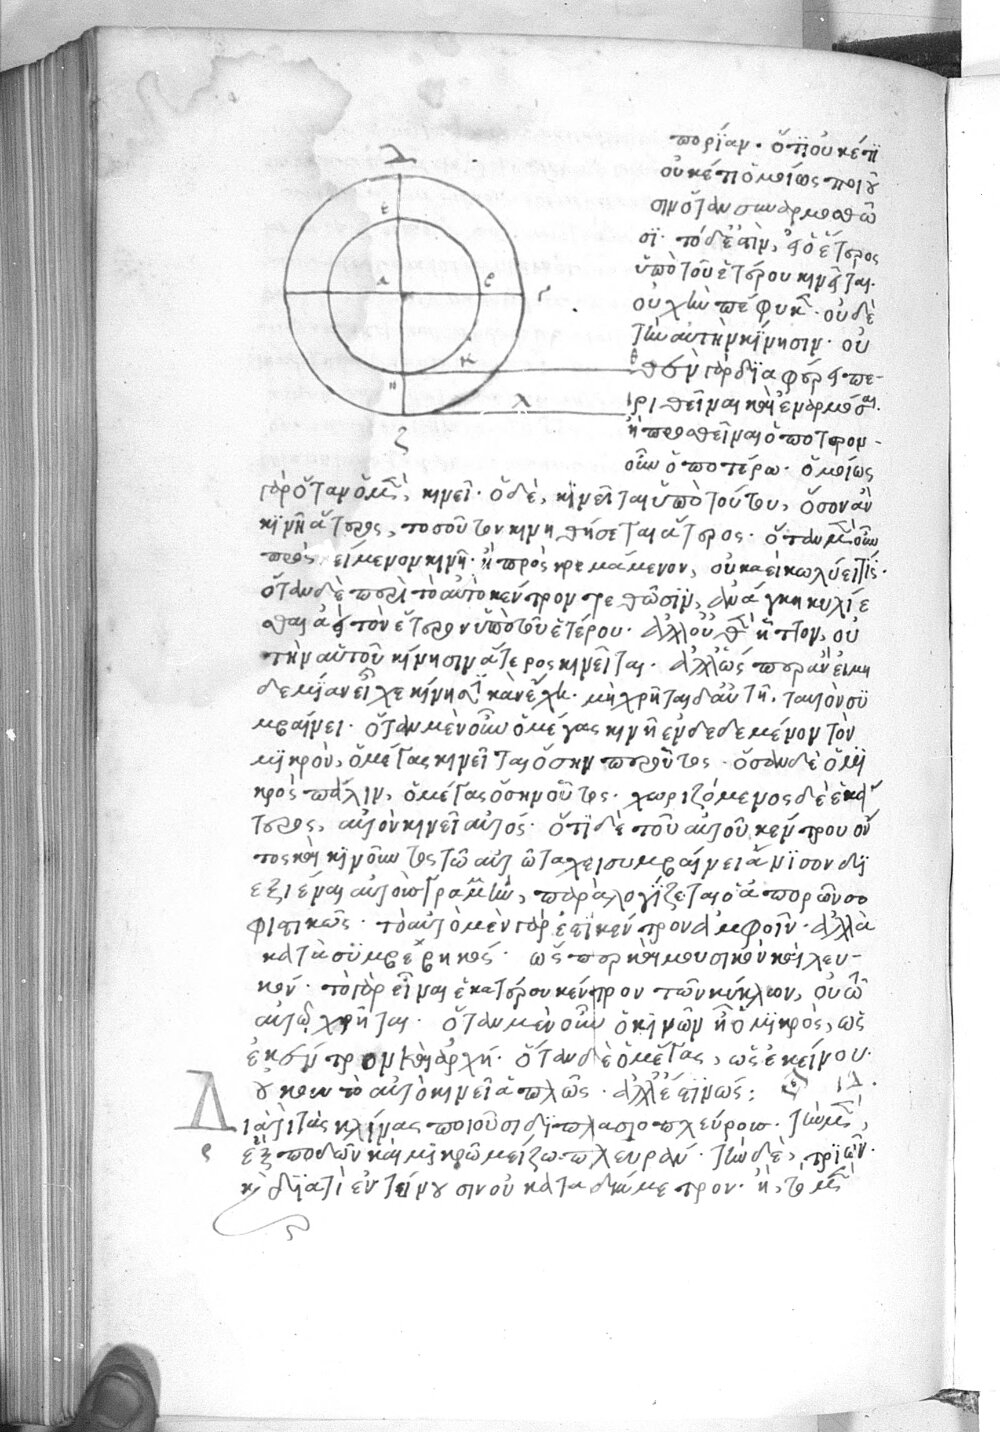 πορίαν. ὅτι οὐκ ἔτι
οὐκέτι ὁμοίως ποιοῦ
σιν ὅταν συναρμοσθῶ
σι. τὸ δ' ἐστὶν, ὁ ἕτερος
ὑπὸ τοῦ ἑτέρου κινεῖται.
οὐχ ἣν πέφυκεν. οὐδὲ
τὴν αὐτὴν κίνησιν. οὐ
θὲν γὰρ διαφέρει πε-
ριθεῖναι καὶ ἐναρμόσαι.
ἢ προσθεῖναι ὁποτερον-
οῦν ὁποτέρω. ὁμοίως
γὰρ ὅταν ὁ μὲν, κινεῖ. ὁ δὲ, κινεῖται ὑπὸ τούτου, ὅσον ἂν
κινῆ ἅτερος, τοσοῦτον κινηθήσεται ἅτερος. ὅταν μὲν οὖν
προσκείμενον κινῆ. ἢ προσκρεμάμενον, οὐκ ἀεὶ κωλύει τίς.
ὅταν δὲ περὶ τὸ αὐτὸ κέντρον τεθῶσιν, ἀνάγκη κυλίε
σθαι ἀεὶ τὸν ἕτερον ὑπὸ τοῦ ἑτέρου. ἀλλ' οὐθὲν ἧττον, οὐ
τὴν αὑτοῦ κίνησιν ἅτερος κινεῖται. ἀλλ' ὥσπερ ἂν εἰ μη
δεμίαν εἶχε κίνησιν κἂν ἔχη. μὴ χρῆται δ' αὐτῆ, ταυτὸν συ
μβαίνει. ὅταν μὲν οὖν ὁ μέγας κινῆ ἐνδεδεμένον τὸν
μικρὸν, ὁ μέγας κινεῖται ὅσην περ οὗτος. ὅταν δὲ ὁ μι
κρὸς πάλιν, ὁ μέγας ὅσην οὗτος. χωριζόμενος δὲ ἑκά
τερος, αὐτὸν κινεῖ αὐτός. ὅτι δὲ τοῦ αὐτοῦ κέντρου ὄν
τος καὶ κινοῦντος τῶ αὐτῶ τάχει συμβαίνει ἄνισον δι
εξιέναι αὐτοὺς γραμμὴν, παραλογίζεται ὁ ἀπορῶν σο
φιστικῶς. τὸ αὐτὸ μὲν γάρ ἐστι κέντρον ἀμφοῖν. ἀλλὰ
κατὰ συμβεβηκός. ὥς περ καὶ μουσικὸν καὶ λευ-
κόν. τὸ γὰρ εἶναι ἑκατέρου κέντρον τῶν κύκλων, οὐ τῶ
αὐτῶ χρῆται. ὅταν μὲν οὖν ὁ κινῶν ἦ ὁ μικρὸς, ὡς
ἐκ κέντρον καὶ ἀρχή. ὅταν δὲ ὁ μέγας, ὡς ἐκείνου.
οὔκουν τὸ αὐτὸ κινεῖ ἁπλῶς. ἀλλ' ἔστιν ὥς:
Διὰ τί τὰς κλίνας ποιοῦσι διπλασιοπλεύρους. τὴν μὲν,
ἓξ ποδῶν καὶ μικρῶ μείζω πλευράν. τὴν δὲ, τριῶν.
κ διατί ἐντείνουσιν οὐ κατὰ διάμετρον. ἢ, τὸ μὲν